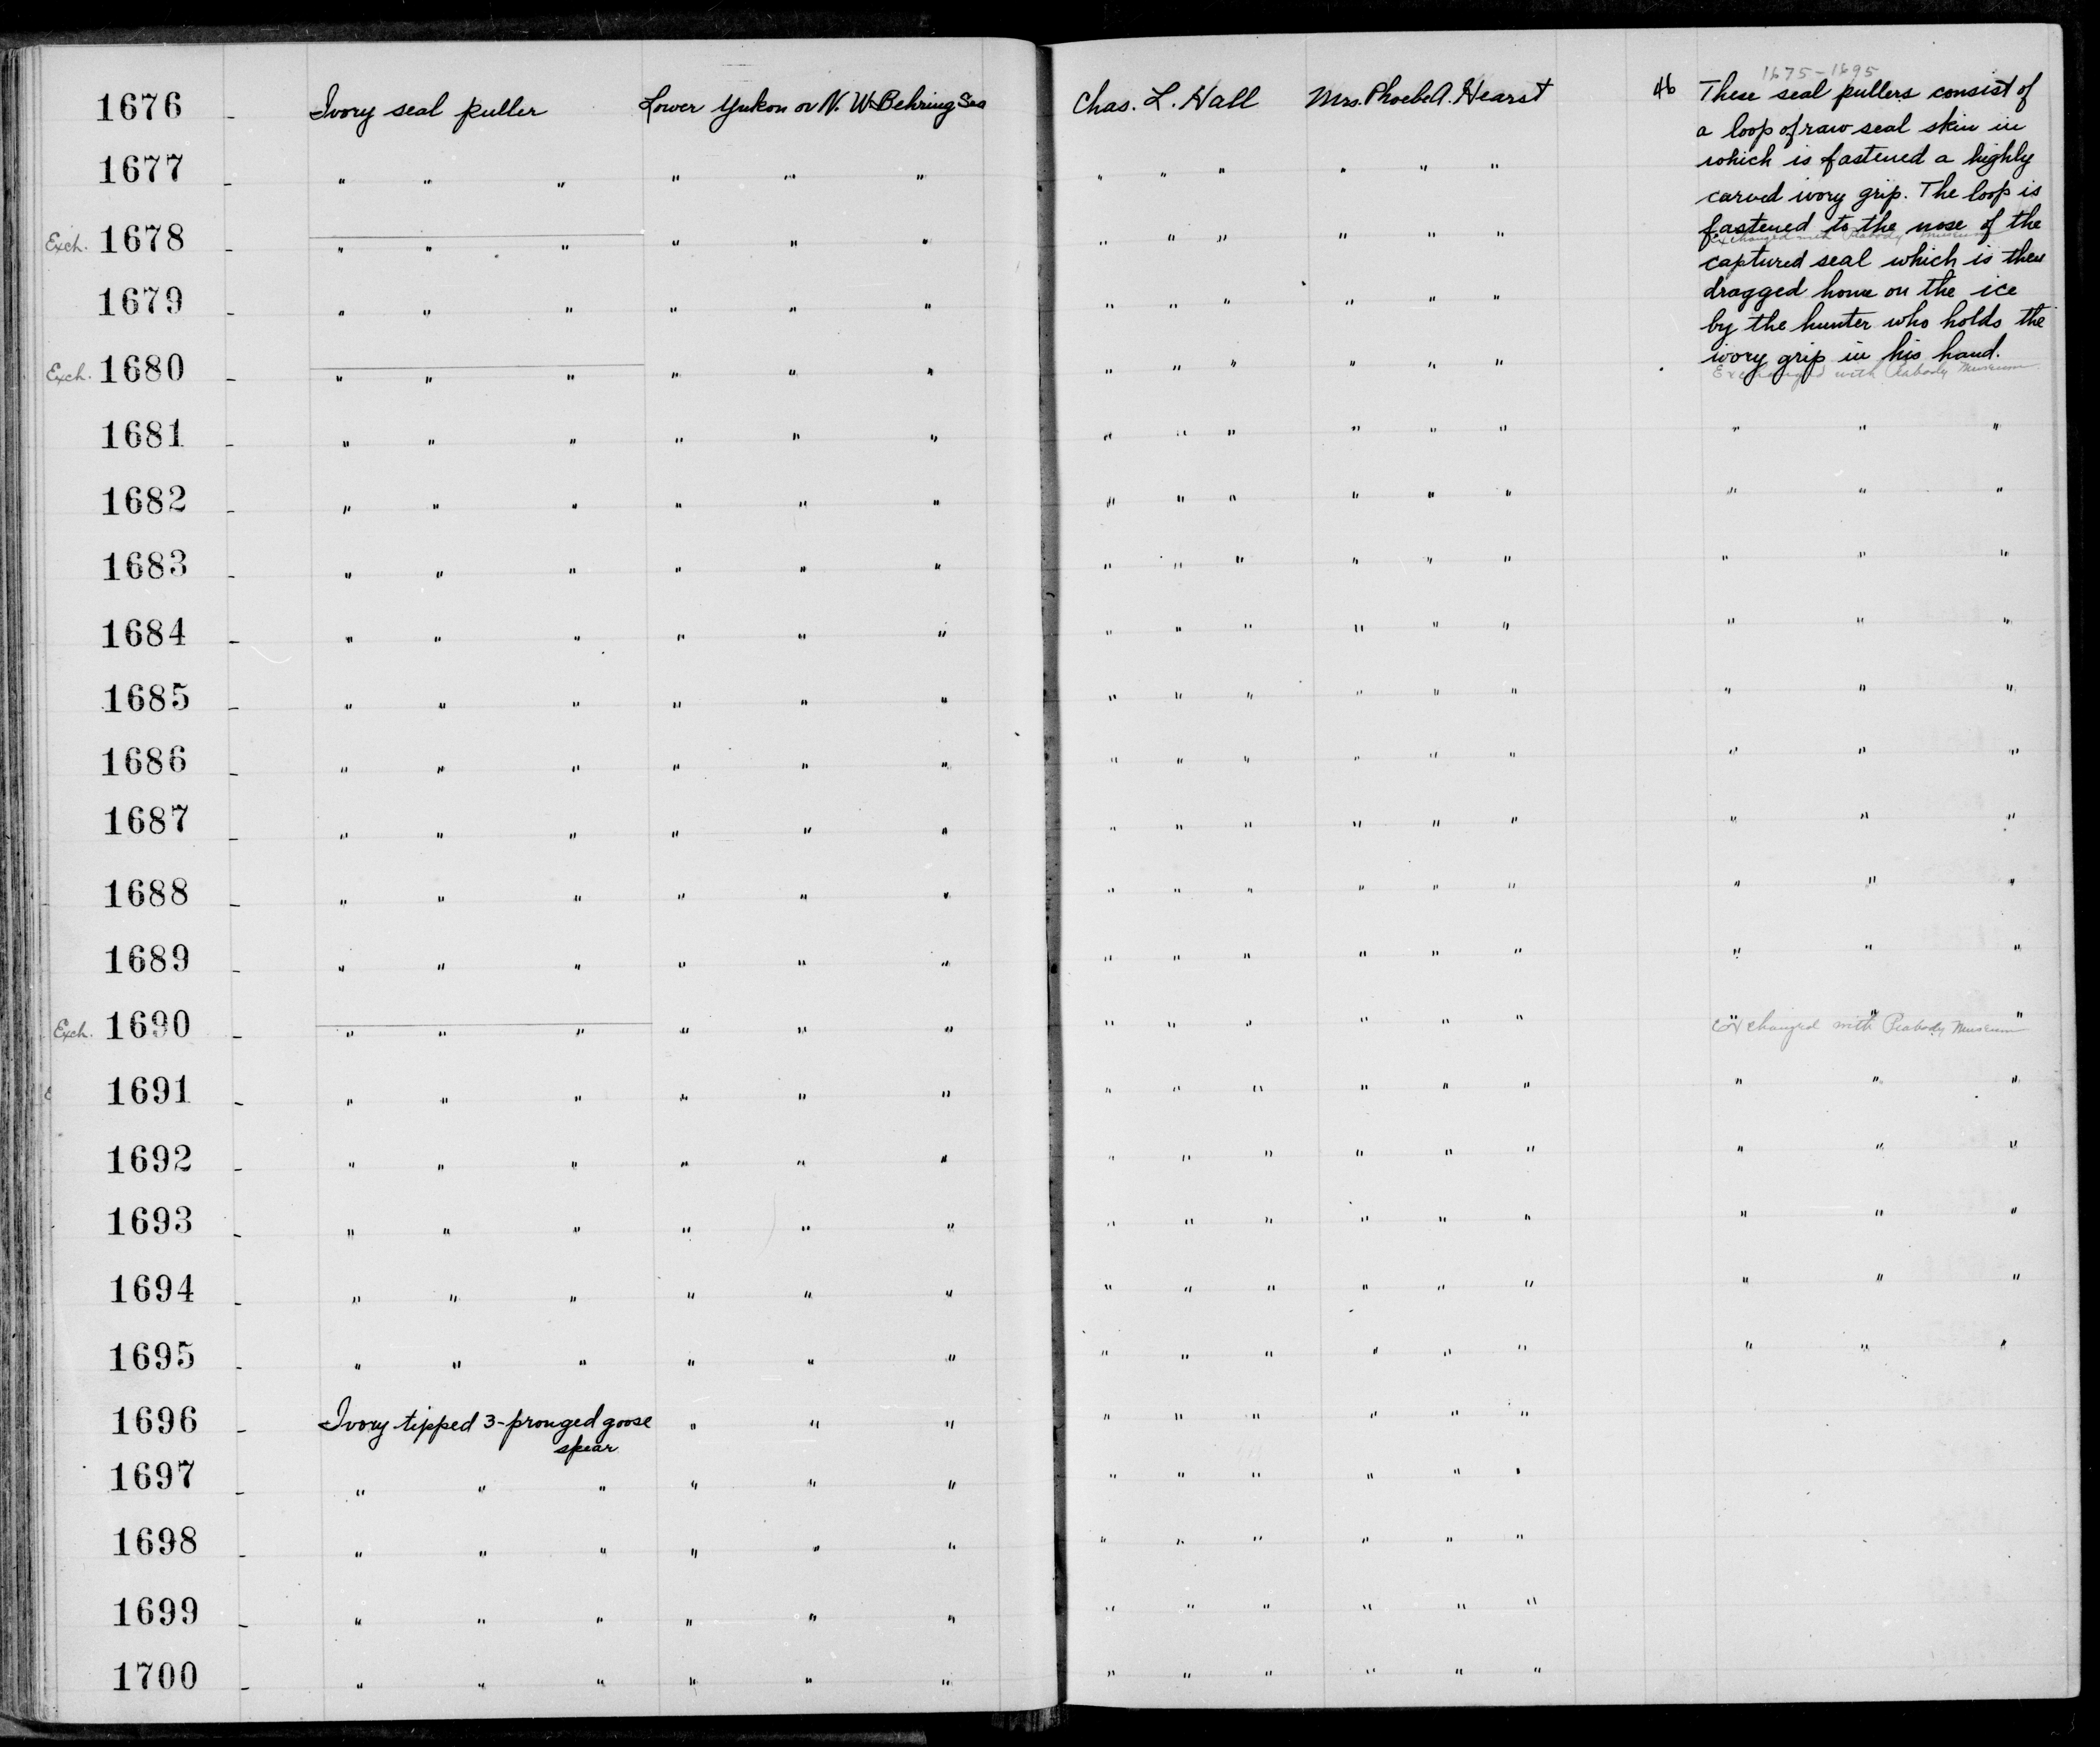 1675-1695
1676 - Ivory seal puller Lower Yukon or N. W. Behring Sea Chas. L. Hall Mrs. Phoebe A. Hearst 46 These seal pullers consist of
a loop of raw seal skin in
1677 - " " " " " " " " " " " " which is fastened a highly
carved ivory grip. The loop is
Exch. 1678 - " " " " " " " " " " " " fastened to the nose of the
Exchanged with Peabody Museum
captured seal which is then
1679 - " " " " " " " " " " " " dragged home on the ice
by the hunter who holds the
Exch. 1680 - " " " " " " " " " " " " ivory grip in his hand.
Exchanged with Peabody Museum
1681 - " " " " " " " " " " " " " " "
1682 - " " " " " " " " " " " " " " "
1683 - " " " " " " " " " " " " " " "
1684 - " " " " " " " " " " " " " " "
1685 - " " " " " " " " " " " " " " "
1686 - " " " " " " " " " " " " " " "
1687 - " " " " " " " " " " " " " " "
1688 - " " " " " " " " " " " " " " "
1689 - " " " " " " " " " " " " " " "
Exch. 1690 - " " " " " " " " " " " " " " "
Exchanged with Peabody Museum
1691 - " " " " " " " " " " " " " " "
1692 - " " " " " " " " " " " " " " "
1693 - " " " " " " " " " " " " " " "
1694 - " " " " " " " " " " " " " " "
1695 - " " " " " " " " " " " " " " "
1696 - Ivory tipped 3-pronged goose " " " " " " " " "
spear
1697 - " " " " " " " " " " " "
1698 - " " " " " " " " " " " "
1699 - " " " " " " " " " " " "
1700 - " " " " " " " " " " " "